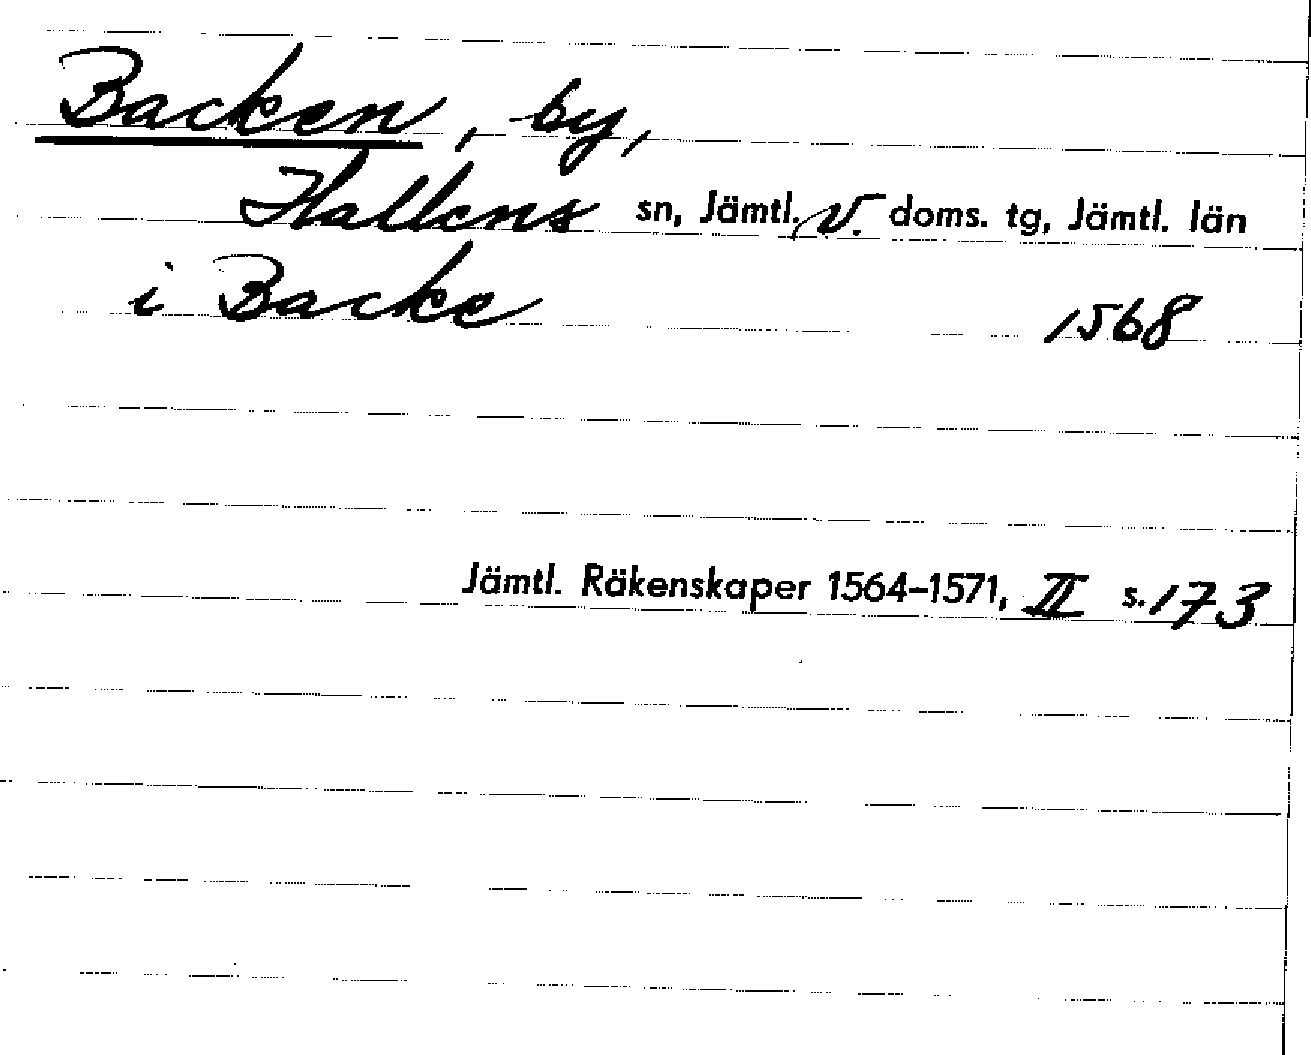 Backen, by,
Hallens sn, Jämtl. v. doms. tg, Jämtl. län
i Backe 1568
Jämtl. Räkenskaper 1564–1571, II s. 173